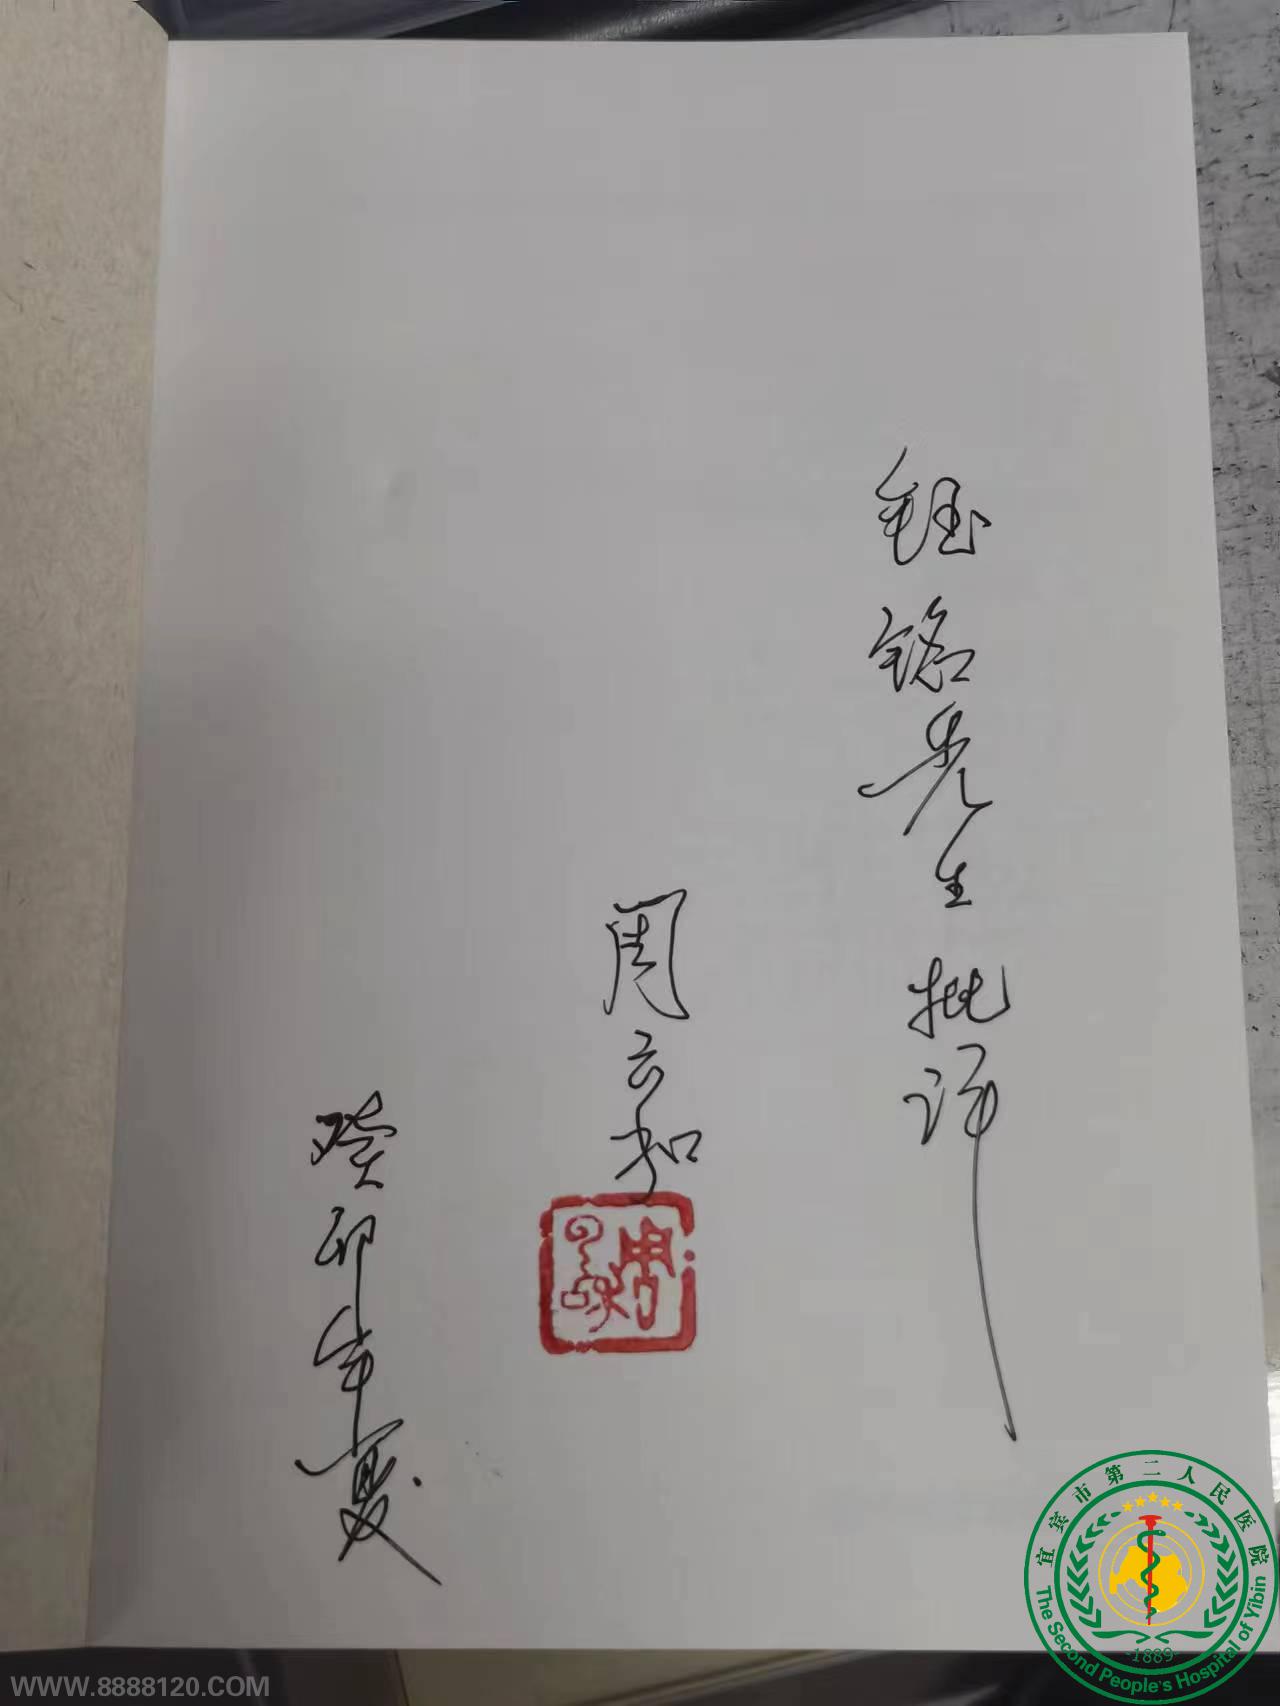 钰铭先生 批评
周云和
癸卯年夏.
宜宾市第二人民医院
The Second People's Hospital of Yibin
-1889-
WWW.8888120.COM